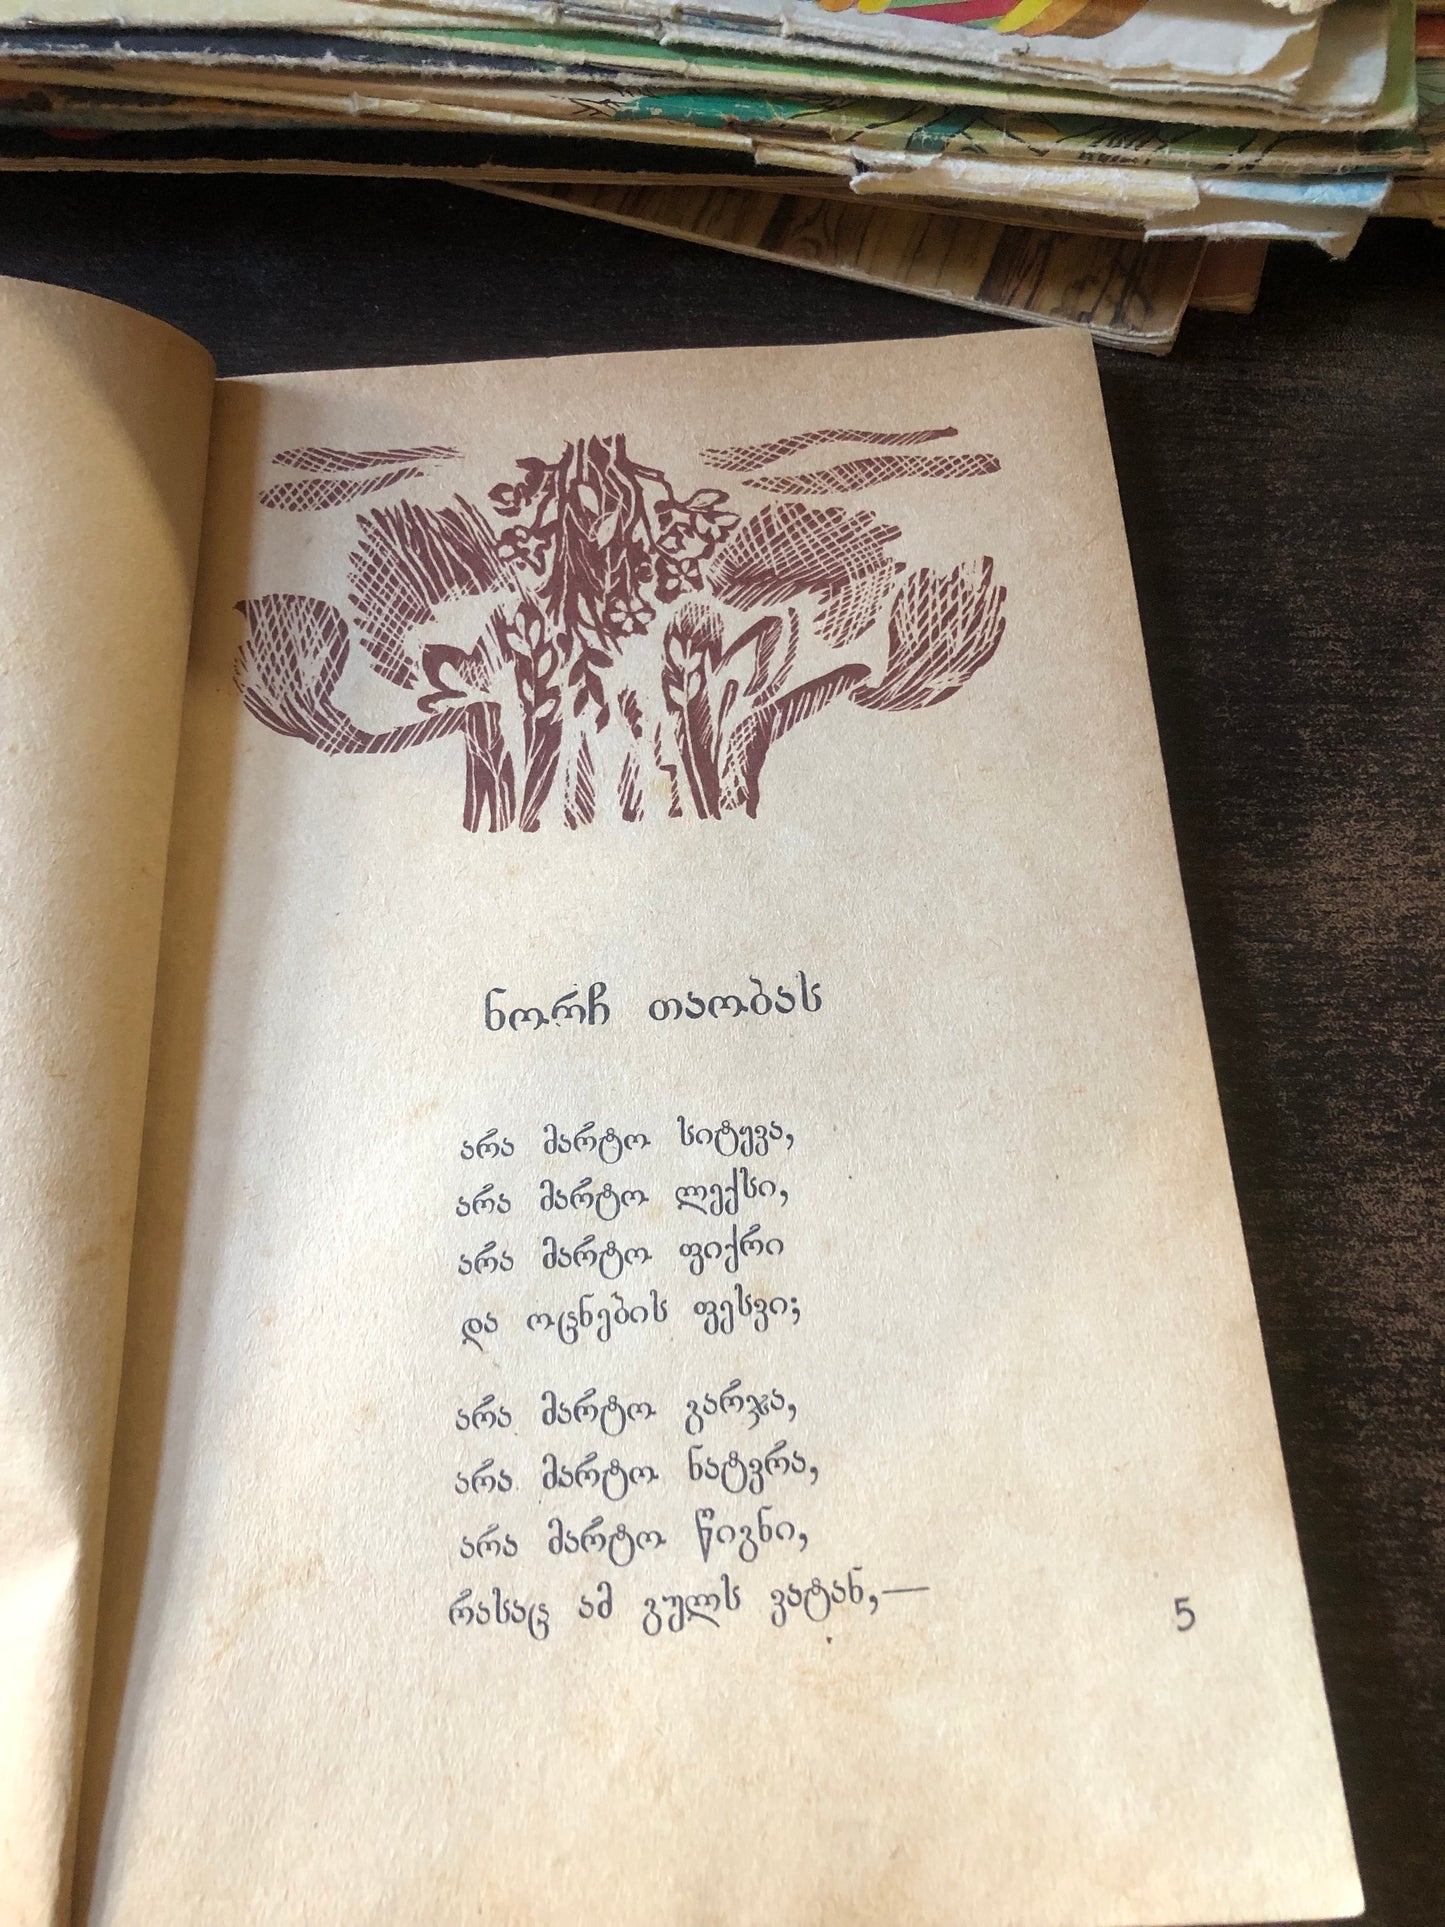 ნორჩ თაობას
არა მარტო სიტყვა,
არა მარტო ლექსი,
არა მარტო ფიქრი
და ოცნების ფესვი;
არა მარტო გარჯა,
არა მარტო ნატვრა,
არა მარტო წიგნი,
რასაც ამ გულს ვატან,—
5